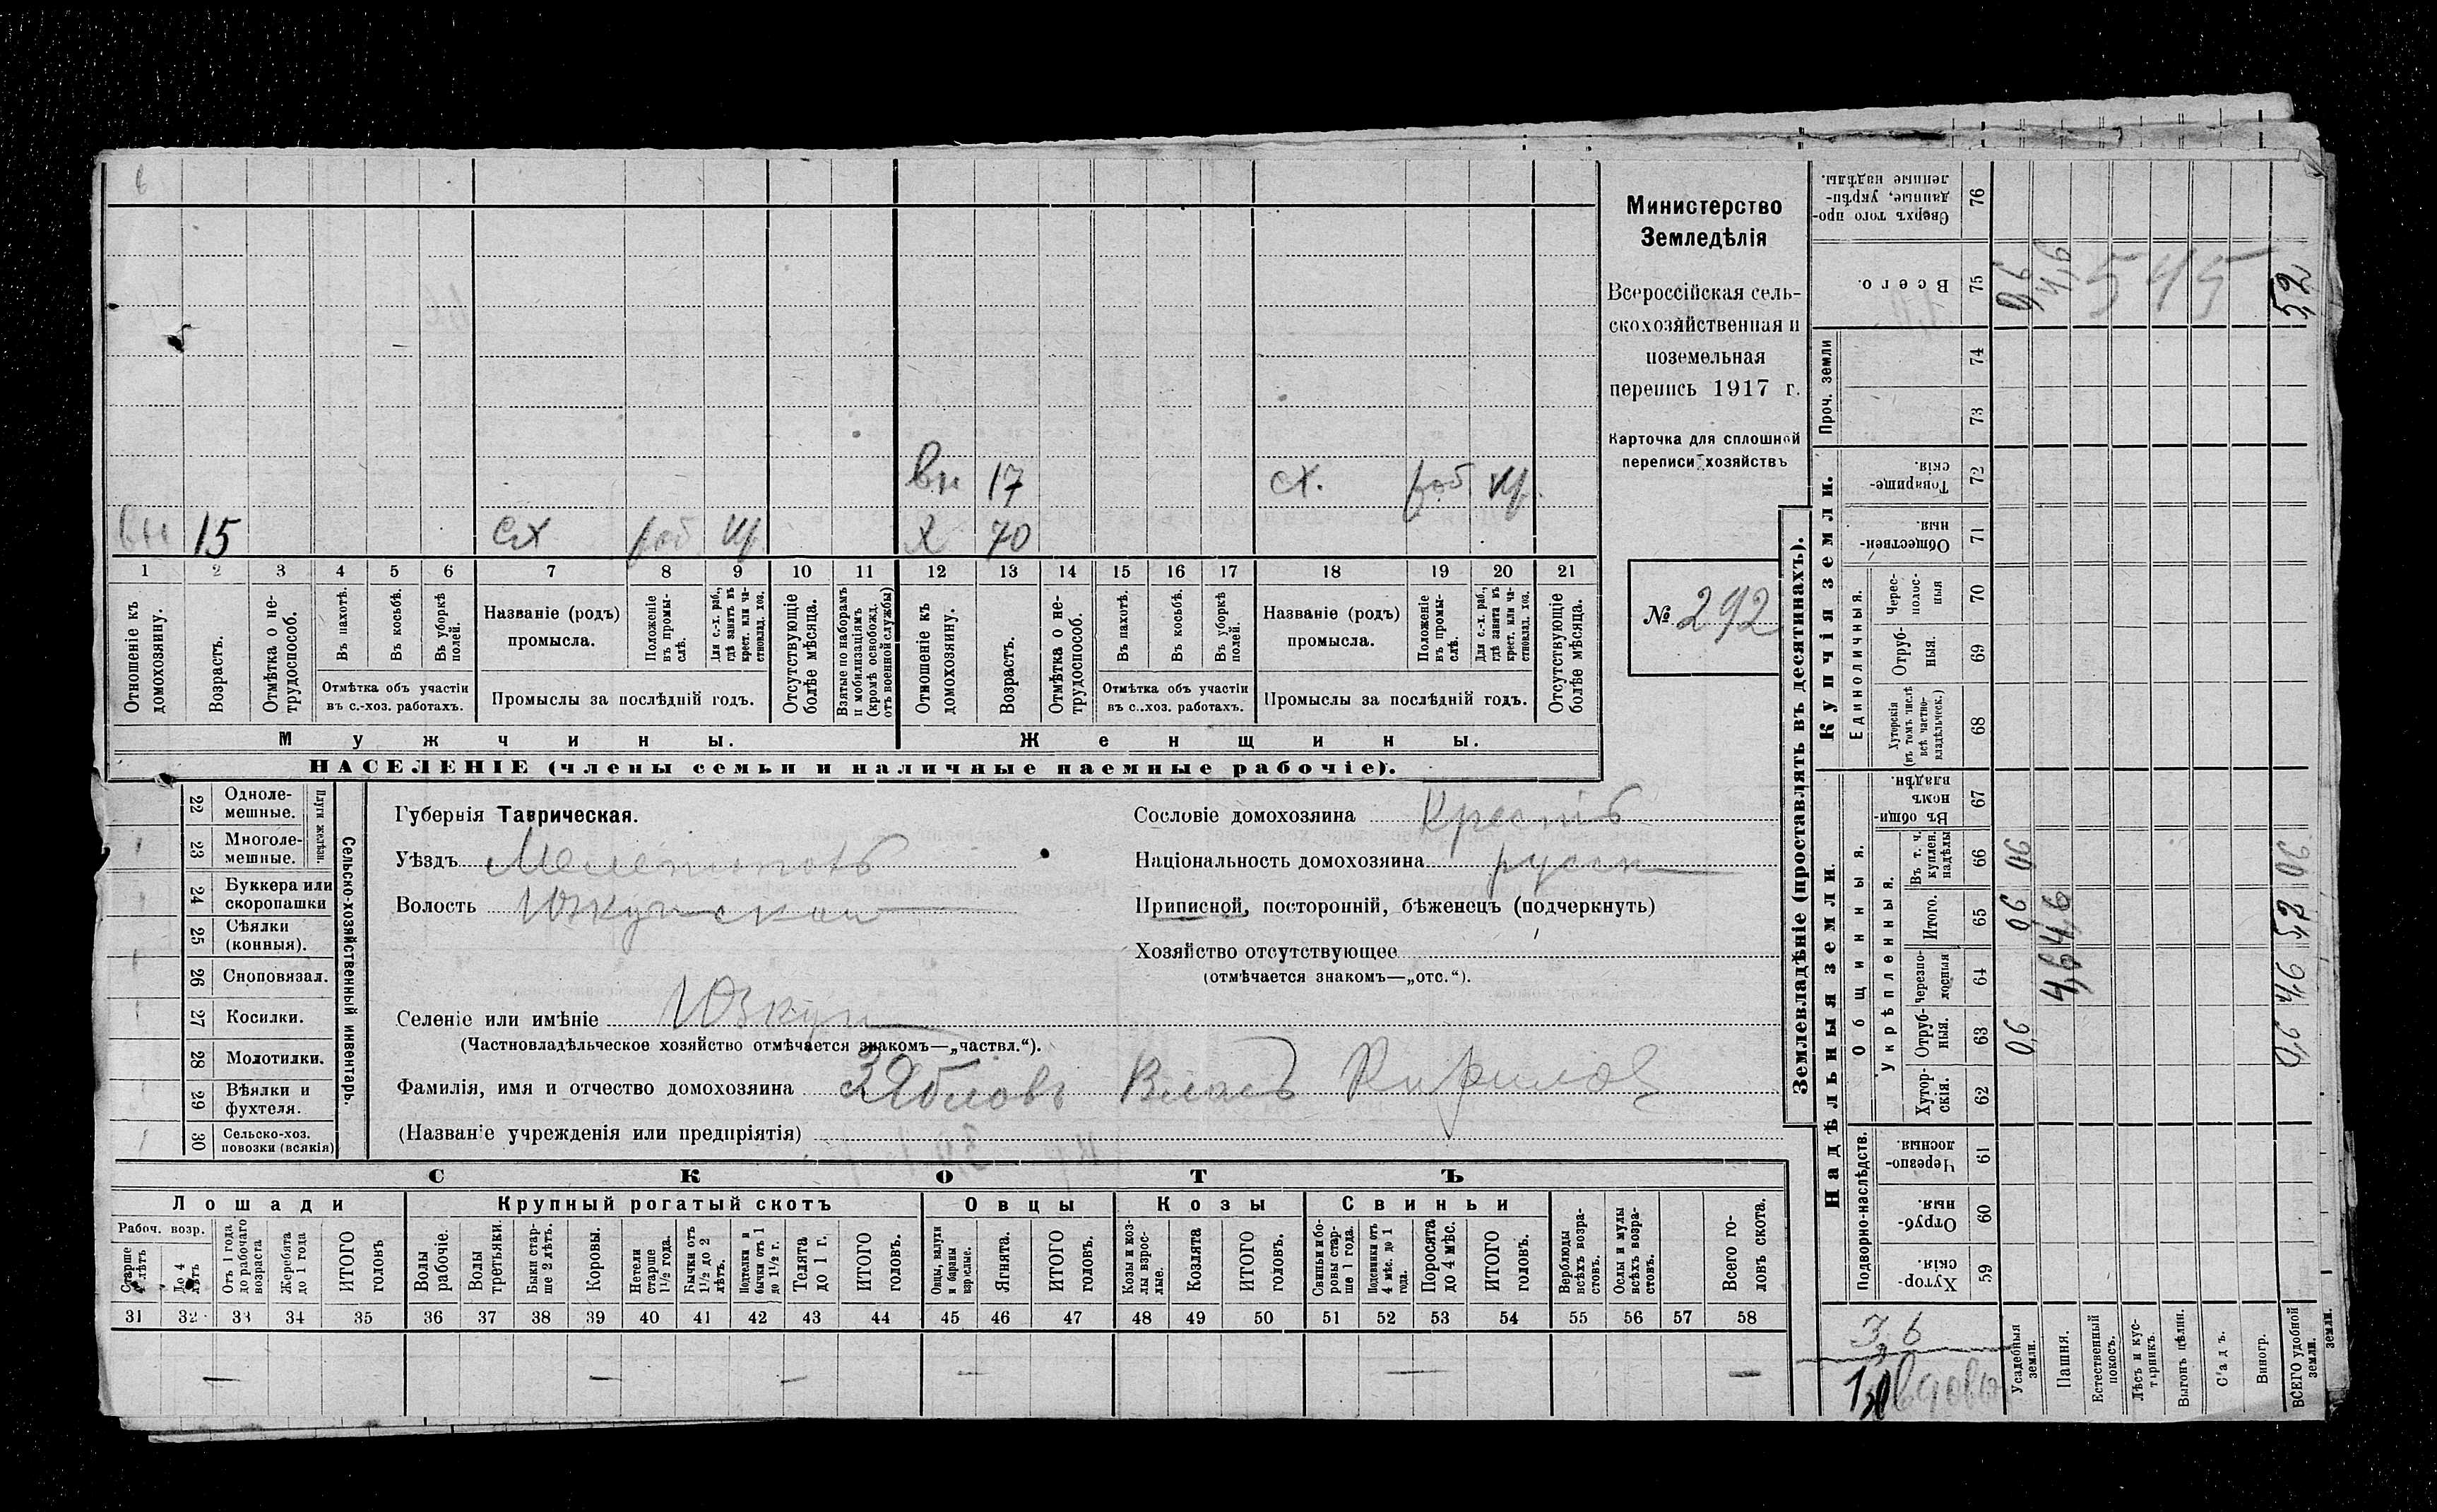 вн 17 сх. раб
вн 15 сх раб х 70
1 2 3 4 5 6 7 8 9 10 11 12 13 14 15 16 17 18 19 20 21
Отношеніе къ домохозяину.
Возрастъ.
Отмѣтка о нетрудоспособ.
Въ пахотѣ.
Въ косьбѣ.
Въ уборкѣ полей.
Отмѣтка объ участіи
въ с.-хоз. работахъ.
Названіе (родъ)
промысла.
Положеніе въ промыслѣ.
Для с.-х. раб., гдѣ занятъ въ крест. или частновлад. хоз.
Промыслы за послѣдній годъ.
Отсутствующіе болѣе мѣсяца.
Взятые по наборамъ и мобилизаціямъ (кромѣ освобожд. отъ военной службы)
Отношеніе къ домохозяину.
Возрастъ.
Отмѣтка о нетрудоспособ.
Въ пахотѣ.
Въ косьбѣ.
Въ уборкѣ полей.
Отмѣтка объ участіи
въ с..хоз. работахъ.
Названіе (родъ)
промысла.
Положеніе въ промыслѣ.
Для с.-х. раб., гдѣ занята въ крест. или частновлад. хоз.
Промыслы за послѣдній годъ.
Отсутствующіе болѣе мѣсяца.
Мужчины. Женщины.
НАСЕЛЕНІЕ (члены семьи и наличные наемные рабочіе).
Министерство
Земледѣлія
Всероссійская сель-
скохозяйственная и
поземельная
перепись 1917 г.
Карточка для сплошной
переписи хозяйствъ
№ 292
Сельско-хозяйственный инвентарь.
Плуги желѣзн.
22 Однолемешные.
23 Многолемешные.
24 Буккера или скоропашки
25 Сѣялки (конныя).
26 Сноповязал.
27 Косилки.
28 Молотилки.
29 Вѣялки и фухтеля.
30 Сельско-хоз. повозки (всякія)
Губернія Таврическая.
Уѣздъ Мелитополь
Волость Юзкуйская
Селеніе или имѣніе Юзкуи
(Частновладѣльческое хозяйство отмѣчается знакомъ—„частвл.“).
Фамилія, имя и отчество домохозяина Зябловъ Власъ Кирилов
(Названіе учрежденія или предпріятія)
Сословіе домохозяина Крестьᲂ
Національность домохозяина русск
Приписной, посторонній, бѣженецъ (подчеркнуть)
Хозяйство отсутствующее
(отмѣчается знакомъ—„отс.“).
СКОТЪ
Лошади Крупный рогатый скотъ Овцы Козы Свиньи
Рабоч. возр.
Старше 4 лѣтъ
До 4 лѣтъ
Отъ 1 года до рабочаго возраста
Жеребята до 1 года
ИТОГО головъ
Волы рабочіе.
Волы третьяки.
Быки старше 2 лѣтъ.
Коровы.
Нетели старше 1½ года.
Бычки отъ 1½ до 2 лѣтъ.
Подтелки и бычки отъ 1 до 1½ г.
Телята до 1 г.
ИТОГО головъ.
Овцы, валухи и бараны взрослые.
Ягнята.
ИТОГО головъ.
Козы и козлы взрослые.
Козлята
ИТОГО головъ.
Свиньи и боровы старше 1 года.
Подсвинки отъ 4 мѣс. до 1 года.
Поросята до 4 мѣс.
ИТОГО головъ.
Верблюды всѣхъ возрастовъ.
Ослы и мулы всѣхъ возрастовъ.
Всего головъ скота.
31 32 33 34 35 36 37 38 39 40 41 42 43 44 45 46 47 48 49 50 51 52 53 54 55 56 57 58
— — — — — — —
Землевладѣніе (проставлять въ десятинахъ).
Надѣльныя земли. Купчія земли.
Подворно-наслѣдств.
Общинныя.
Укрѣпленныя.
Единоличныя.
Проч. земли
Хуторскія. 59
Отрубныя. 60
Черезполосныя 61
Хуторскія. 62
Отрубныя. 63
Черезполосныя 64
Итого. 65
Въ т. ч. куплен. надѣлы 66
Въ общинномъ владѣн. 67
Хуторскія (въ томъ числѣ всѣ частновладѣльческ.) 68
Отрубныя. 69
Череcполосныя 70
Общественныя. 71
Товарищескія. 72
73
74
Всего. 75
Сверхъ того проданные, укрѣпленные надѣлы. 76
Усадебныя земли. 0,6 0,6 06 0,6
Пашня. 4,6 4,6 4,6
Естественный покосъ.
Лѣсъ и кустарникъ.
Выгонъ цѣлин.
Садъ.
Виногр.
ВСЕГО удобной земли. 0,6 4,6 5,2 06 5,2
земли.
545
3,6